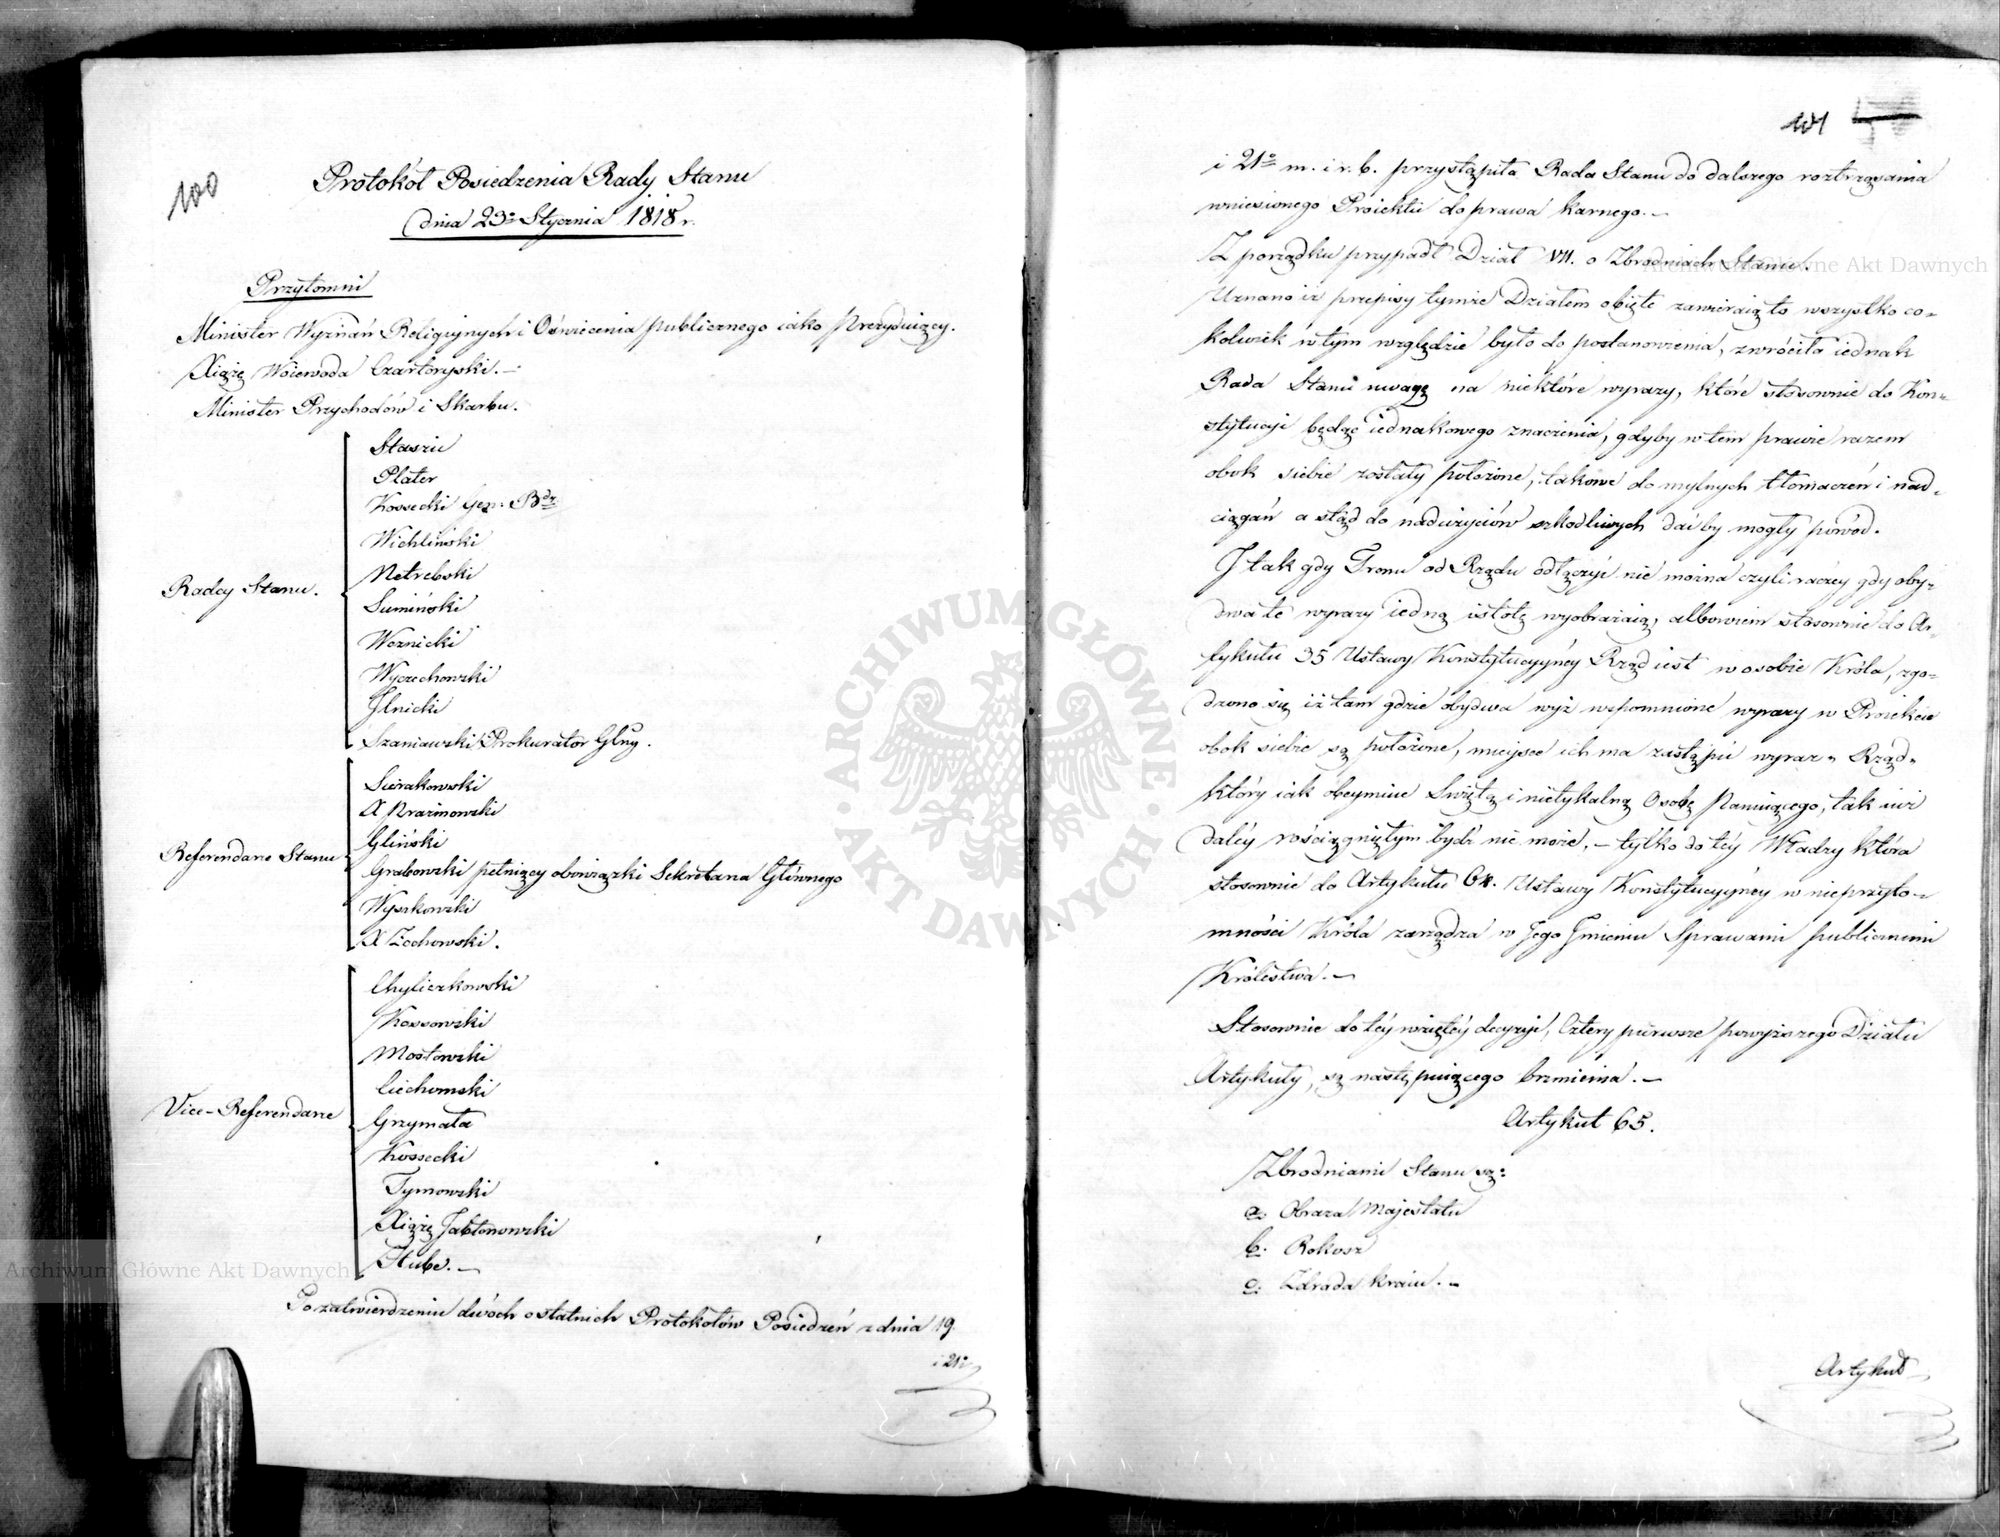 100
Protokół Posiedzenia Rady Stanu
dnia 23º Stycznia 1818 r.
Przytomni
Minister Wyznań Religijnych i Oświecenia publicznego iako Prezyduiący.
Xiążę Woiewoda Czartoryski. –
Minister Przychodów i Skarbu.
Radcy Stanu.
Staszic
Plater
Kossecki Gen: Bdy
Wichliński
Netrebski
Sumiński
Woznicki
Wyczechowski
Jlnicki
Szaniawski Prokurator Glny.
Referendarze Stanu
Sierakowski
X Prazmowski
Gliński
Grabowski pełniący obowiązki Sekretarza Głównego
Wyszkowski
X Zochowski.
Vice-Referendarze
Chyliczkowski
Kossowski
Mostowski
Ciechomski
Grzymała
Kossecki
Tymowski
Xiążę Jabłonowski
Hube. –
Po zatwierdzeniu dwóch ostatnich Protokołów Posiedzeń z dnia 19.
i 21º
101
i 21º m. i r. b. przystąpiła Rada Stanu do dalszego roztrząsania
wniesionego Proiektu do prawa karnego. –
Z porządku przypadł Dział VII. o Zbrodniach Stanu.
Uznano iż przepisy tymże Działem obięte zawieraią to wszystko co-
kolwiek w tym względzie było do postanowienia, zwróciła iednak
Rada Stanu uwagę na niektóre wyrazy, które stosownie do Kon-
stytucyi będąc iednakowego znaczenia, gdyby w tem prawie razem
obok siebie zostały położone, takowe do mylnych tłomaczeń i nad-
ciągań a stąd do nadużyciów szkodliwych dać by mogły powód.
J tak gdy Tronu od Rządu odłączyć nie można czyli raczey gdy oby-
dwa te wyrazy iedną istotę wyobrażaią, albowiem stosownie do Ar-
tykułu 35 Ustawy Konstytucyyney Rząd iest w osobie Króla, zgo-
dzono się iż tam gdzie obydwa wyż wspomnione wyrazy w Proiekcie
obok siebie są położone, miejsce ich ma zastąpić wyraz „ Rząd „
który iak obeymuie Swiętą i nietykalną Osobę Panuiącego, tak iuż
daléy rościągniętym bydź nie może, – tylko do téy Władzy która
stosownie do Artykułu 64. Ustawy Konstytucyyney w nieprzyto-
mności Króla zarządza w Jego Jmieniu Sprawami publicznemi
Królestwa. –
Stosownie do téy wziętéy decyzyi, Cztery pierwsze powyższego Działu
Artykuły, są następuiącego brzmienia. –
Artykuł 65.
Zbrodniami Stanu są:
a. Obraza Majestatu
b. Rokosz
c. Zdrada kraiu. –
Artykuł
Archiwum Główne Akt Dawnych
Archiwum Główne Akt Dawnych
ARCHIWUM GŁÓWNE · AKT DAWNYCH ·